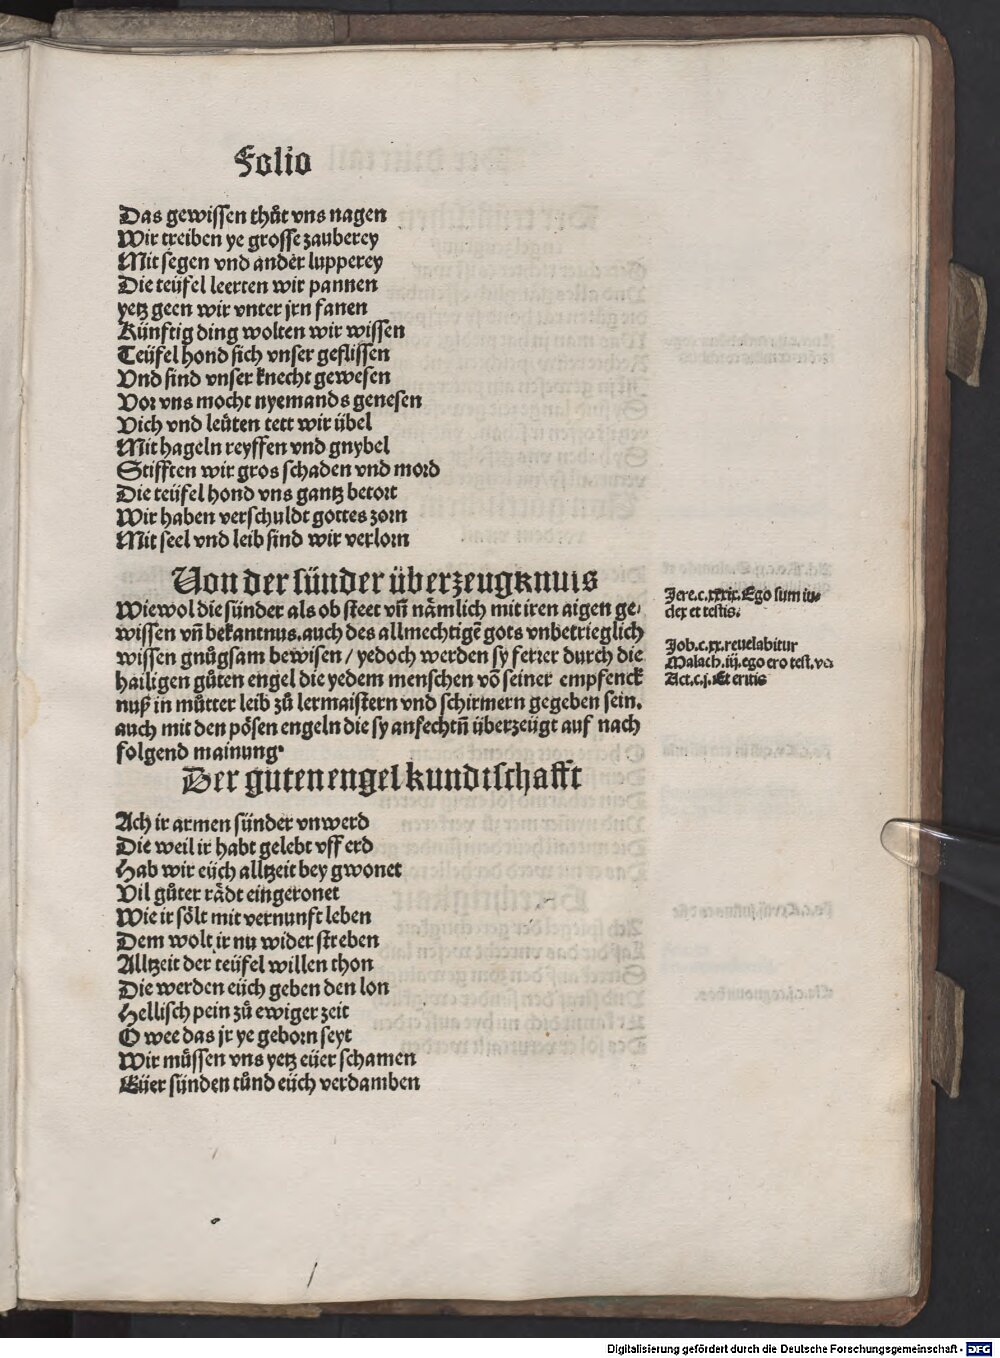 Folio
Das gewissen thůt vns nagen
Wir treiben ye grosse zauberey
Mit segen vnd ander lupperey
Die teüfel leerten wir pannen
yetz geen wir vnter jrn fanen
Künftig ding wolten wir wissen
Teüfel hond sich vnser geflissen
Vnd sind vnser knecht gewesen
Vor vns mocht nyemands genesen
Vich vnd leüten tett wir übel
Mit hageln reyffen vnd gnybel
Stifften wir gros schaden vnd mord
Die teüfel hond vns gantz betort
Wir haben verschuldt gottes zorn
Mit seel vnd leib sind wir verlorn
Von der sünder überzeugknuis
Wiewol die sünder als ob steet vn̄ nämlich mit iren aigen ge-
wissen vn̄ bekantnus. auch des allmechtigē gots vnbetrieglich
wissen gnůgsam bewisen / yedoch werden sy ferrer durch die
hailigen gůten engel die yedem menschen vō seiner empfenck
nuß in můtter leib zů lermaistern vnd schirmern gegeben sein.
auch mit den pösen engeln die sy anfechtn̄ überzeügt auf nach
folgend mainung.
Jere.c.xxix. Ego sum iu-
dex et testis.
Job.c.xx. reuelabitur
Malach.iij. ego ero test. ve
Act.c.j. Et eritis
Der guten engel kundtschafft
Ach ir armen sünder vnwerd
Die weil ir habt gelebt vff erd
Hab wir eüch alltzeit bey gwonet
Vil gůter rädt eingeronet
Wie ir sölt mit vernunft leben
Dem wolt ir nu wider streben
Alltzeit der teüfel willen thon
Die werden eüch geben den lon
Hellisch pein zů ewiger zeit
O wee das jr ye geborn seyt
Wir müssen vns yetz eüer schamen
Eüer sünden tůnd eüch verdamben
Digitalisierung gefördert durch die Deutsche Forschungsgemeinschaft - DFG